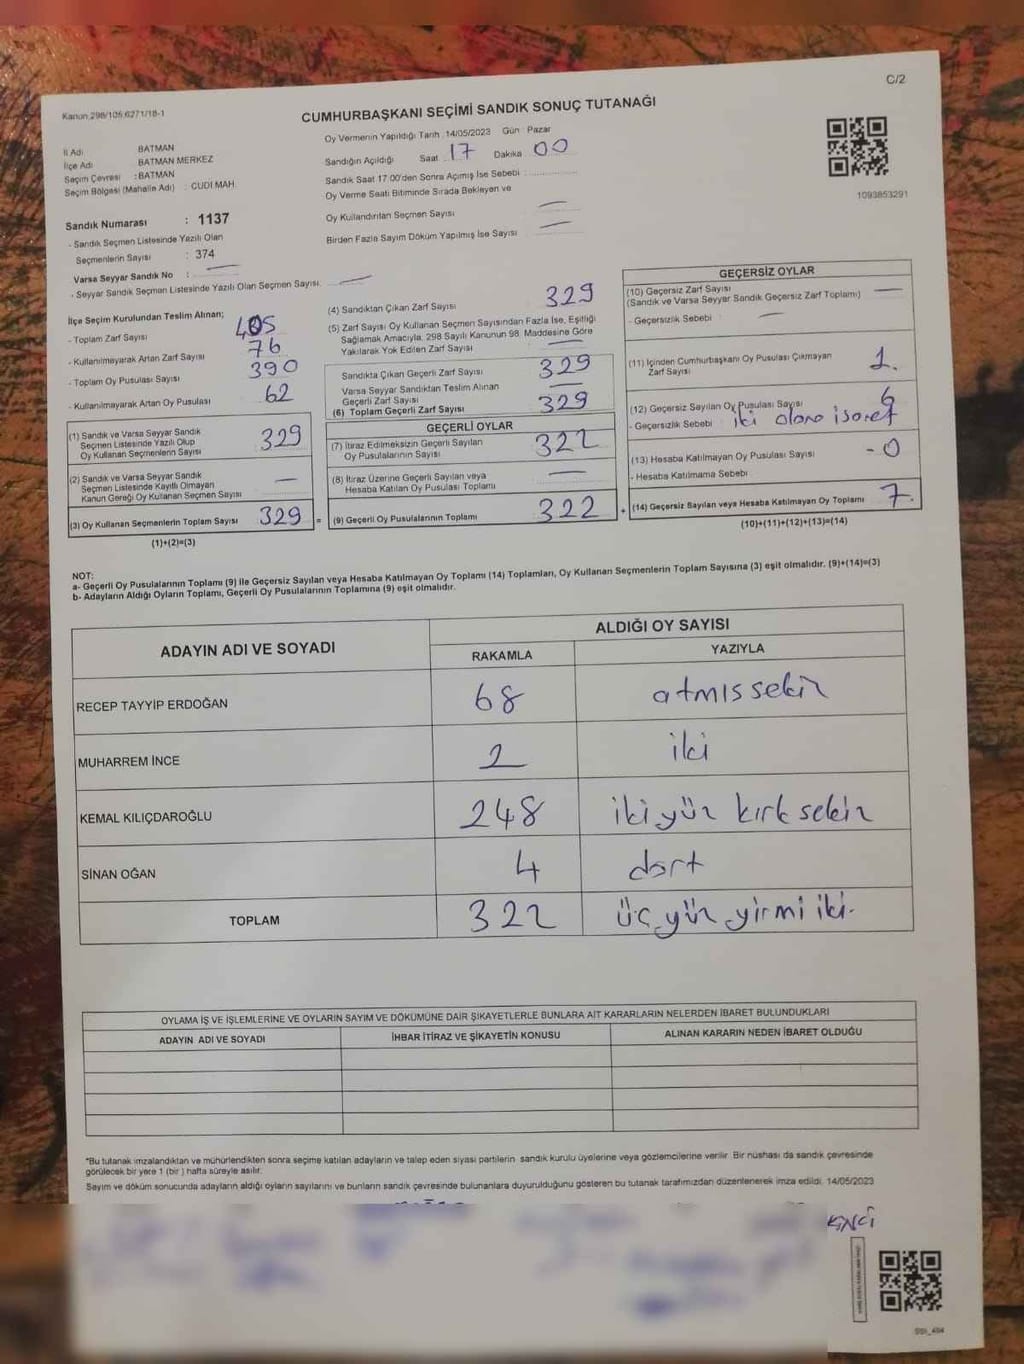 C/2
Kanun 298/105,6271/18-1
CUMHURBAŞKANI SEÇİMİ SANDIK SONUÇ TUTANAĞI
İl Adı BATMAN
İlçe Adı BATMAN MERKEZ
Seçim Çevresi :BATMAN
Seçim Bölgesi (Mahalle Adı) : CUDİ MAH.
Oy Vermenin Yapıldığı Tarih 14/05/2023 Gün Pazar
Sandığın Açıldığı Saat 17 Dakika 00
Sandık Saat 17.00'den Sonra Açımış İse Sebebi
Oy Verme Saati Bitiminde Sırada Bekleyen ve
Oy Kullandırılan Seçmen Sayısı —
Birden Fazla Sayım Döküm Yapılmış İse Sayısı —
1093853291
Sandık Numarası : 1137
- Sandık Seçmen Listesinde Yazılı Olan
Seçmenlerin Sayısı : 374
Varsa Seyyar Sandık No : —
- Seyyar Sandık Seçmen Listesinde Yazılı Olan Seçmen Sayısı: —
İlçe Seçim Kurulundan Teslim Alınan;
- Toplam Zarf Sayısı 405
- Kullanılmayarak Artan Zarf Sayısı 76
- Toplam Oy Pusulası Sayısı 390
- Kullanılmayarak Artan Oy Pusulası 62
(1) Sandık ve Varsa Seyyar Sandık
Seçmen Listesinde Yazılı Olup
Oy Kullanan Seçmenlerin Sayısı 329
(2) Sandık ve Varsa Seyyar Sandık
Seçmen Listesinde Kayıtlı Olmayan
Kanun Gereği Oy Kullanan Seçmen Sayısı —
(3) Oy Kullanan Seçmenlerin Toplam Sayısı 329 =
(1)+(2)=(3)
(4) Sandıktan Çıkan Zarf Sayısı 329
(5) Zarf Sayısı Oy Kullanan Seçmen Sayısından Fazla İse, Eşitliği
Sağlamak Amacıyla, 298 Sayılı Kanunun 98. Maddesine Göre
Yakılarak Yok Edilen Zarf Sayısı —
Sandıkta Çıkan Geçerli Zarf Sayısı 329
Varsa Seyyar Sandıktan Teslim Alınan
Geçerli Zarf Sayısı —
(6) Toplam Geçerli Zarf Sayısı 329
GEÇERLİ OYLAR
(7) İtiraz Edilmeksizin Geçerli Sayılan
Oy Pusulalarının Sayısı 322
(8) İtiraz Üzerine Geçerli Sayılan veya
Hesaba Katılan Oy Pusulası Toplamı —
(9) Geçerli Oy Pusulalarının Toplamı 322 +
GEÇERSİZ OYLAR
(10) Geçersiz Zarf Sayısı —
(Sandık ve Varsa Seyyar Sandık Geçersiz Zarf Toplamı)
- Geçersizlik Sebebi : —
(11) İçinden Cumhurbaşkanı Oy Pusulası Çıkmayan
Zarf Sayısı 1.
(12) Geçersiz Sayılan Oy Pusulası Sayısı 6
- Geçersizlik Sebebi iki alana isaret
(13) Hesaba Katılmayan Oy Pusulası Sayısı - 0
- Hesaba Katılmama Sebebi
(14) Geçersiz Sayılan veya Hesaba Katılmayan Oy Toplamı 7.
(10)+(11)+(12)+(13)=(14)
NOT:
a- Geçerli Oy Pusulalarının Toplamı (9) ile Geçersiz Sayılan veya Hesaba Katılmayan Oy Toplamı (14) Toplamları, Oy Kullanan Seçmenlerin Toplam Sayısına (3) eşit olmalıdır. (9)+(14)=(3)
b- Adayların Aldığı Oyların Toplamı, Geçerli Oy Pusulalarının Toplamına (9) eşit olmalıdır.
ADAYIN ADI VE SOYADI ALDIĞI OY SAYISI
RAKAMLA YAZIYLA
RECEP TAYYİP ERDOĞAN 68 atmıssekiz
MUHARREM İNCE 2 iki
KEMAL KILIÇDAROĞLU 248 ikiyüz kırk sekiz
SİNAN OĞAN 4 dört
TOPLAM 322 üç yüz yirmi iki.
OYLAMA İŞ VE İŞLEMLERİNE VE OYLARIN SAYIM VE DÖKÜMÜNE DAİR ŞİKAYETLERLE BUNLARA AİT KARARLARIN NELERDEN İBARET BULUNDUKLARI
ADAYIN ADI VE SOYADI İHBAR İTİRAZ VE ŞİKAYETİN KONUSU ALINAN KARARIN NEDEN İBARET OLDUĞU
*Bu tutanak imzalandıktan ve mühürlendikten sonra seçime katılan adayların ve talep eden siyasi partilerin sandık kurulu üyelerine veya gözlemcilerine verilir. Bir nüshası da sandık çevresinde
görülecek bir yere 1 (bir) hafta süreyle asılır.
Sayım ve döküm sonucunda adayların aldığı oyların sayılarını ve bunların sandık çevresinde bulunanlara duyurulduğunu gösteren bu tutanak tarafımızdan düzenlenerek imza edildi. 14/05/2023